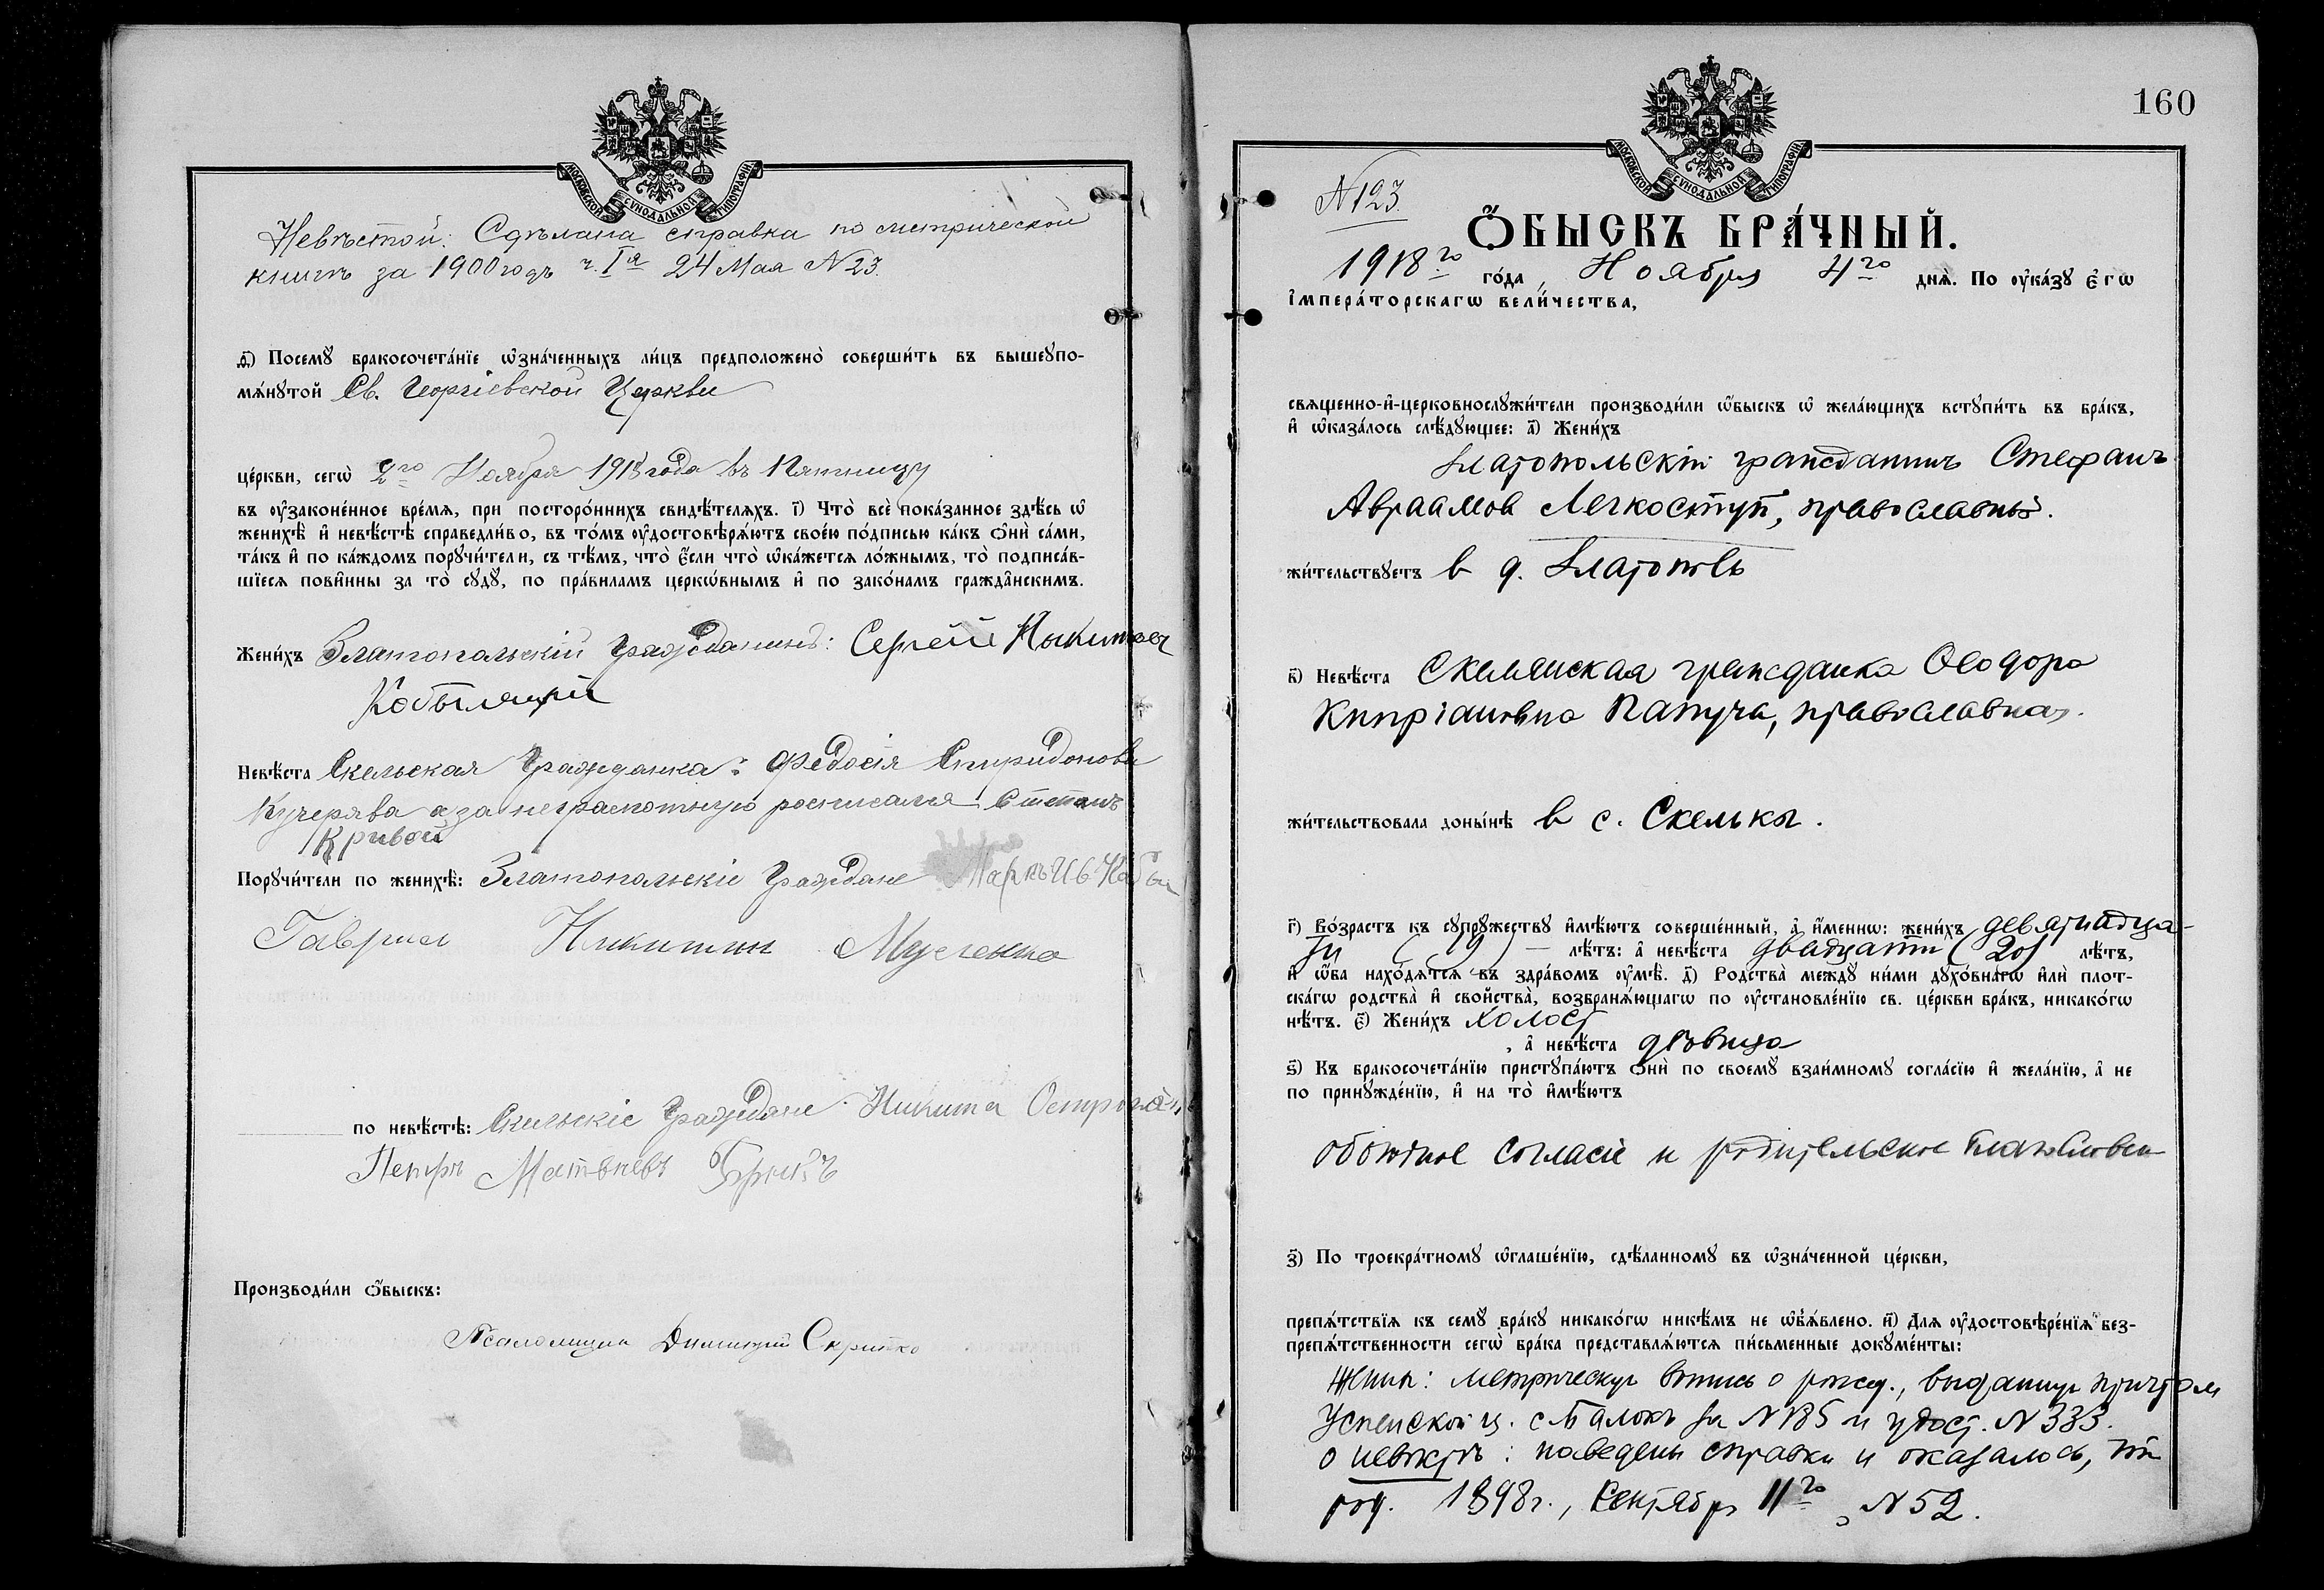 МОСКОВСКОЙ СУНОДАЛЬНОЙ ТИПОГРАФІИ
Невѣстой: Сдѣлана справка по метрической
книгѣ за 1900 годъ ч. Iя 24 Мая N 23.
ѳ҃) Посемꙋ̀ бракосочета́нїе ѡ҆зна́ченныхъ ли́цъ предположено̀ соверши́ть въ вышеꙋпо-
мѧ́нꙋтой Св. Георгіевской Церкви
це́ркви, сегѡ̀ 2го Ноября 1918 года въ Пятницу
въ ᲂу҆законе́нное вре́мѧ, при посторо́ннихъ свидѣ́телѧхъ. і҃) Что̀ всѐ пока́занное здѣ́сь ѡ҆
женихѣ̀ и҆ невѣ́стѣ справедли́во, въ то́мъ ᲂу҆достовѣрѧ́ютъ свое́ю по́дписью ка́къ ѻ҆нѝ са́ми,
та́къ и҆ по ка́ждомъ порꙋчи́тели, съ тѣ́мъ, что̀ є҆́сли что̀ ѡ҆ка́жется ло́жнымъ, то̀ подписа́в-
шїеся пови́нны за то̀ сꙋдꙋ̀, по пра́виламъ церко́внымъ и҆ по зако́намъ гражда́нскимъ.
Жени́хъ Златопольскій гражданинъ: Сергей Никитаев
Кобыляцкій
Невѣ́ста Скельская гражданка: Федосія Спиридонова
Кучерява а за неграмотную росписался Степанъ
Кривой
Порꙋчи́тели по женихѣ̀: Златопольскіе граждане Маркъ Ив
Гавриил Никитин
по невѣ́стѣ: Скельскіе граждане Никита
Петръ Матвѣевъ
Производи́ли ѻ҆́быскъ:
Псаломщик Димитрий Скрипко
160
МОСКОВСКОЙ СУНОДАЛЬНОЙ ТИПОГРАФІИ
N 123.
Ѻ҆́БЫСКЪ БРА́ЧНЫЙ.
1918го го́да, Ноября 4го днѧ̀. По ᲂу҆ка́зꙋ є҆гѡ̀
і҆мпера́торскагѡ вели́чества,
свѧщенно-и҆-церковнослꙋжи́тели производи́ли ѡ҆́быскъ ѡ҆ жела́ющихъ встꙋпи́ть въ бра́къ,
и҆ ѡ҆каза́лось слѣ́дꙋющее: а҃) Жени́хъ
Златопольскій гражданинъ Стефанъ
Авраамов Легкоступ, православный.
жи́тельствꙋетъ в д. Златополь
в҃) Невѣ́ста Скельянская гражданка Ѳеодора
Кипріановна Папуча, православная.
жи́тельствовала доны́нѣ в с. Скельки.
г҃) Во́зрастъ къ сꙋпрꙋ́жествꙋ и҆мѣ́ютъ соверше́нный, а҆ и҆́менно: жени́хъ девятнадца-
ти (19) — лѣ́тъ: а҆ невѣ́ста двадцати (20) лѣ́тъ,
и҆ ѻ҆́ба нахо́дѧтсѧ въ здра́вомъ ᲂу҆мѣ̀. д҃) Родства̀ междꙋ̀ ни́ми дꙋхо́внагѡ и҆лѝ плот-
ска́гѡ родства̀ и҆ сво́йства, возбранѧ́ющагѡ по ᲂу҆становле́нїю св. це́ркви бра́къ, никако́гѡ
нѣ́тъ. є҃) Жени́хъ холост
, а҆ невѣ́ста дѣвица
ѕ҃) Къ бракосочета́нїю пристꙋпа́ютъ ѻ҆нѝ по своемꙋ̀ взаи́мномꙋ согла́сїю и҆ жела́нїю, а҆ не
по принꙋжде́нїю, и҆ на то̀ и҆мѣ́ютъ
обоюдное согласіе и родительское благословен
з҃) По троекра́тномꙋ ѡ҆глаше́нїю, сдѣ́ланномꙋ въ ѡ҆зна́ченной це́ркви,
препѧ́тствїѧ къ семꙋ̀ бра́кꙋ никако́гѡ никѣ́мъ не ѡ҆бъѧ́влено. и҃) Для ᲂу҆достовѣре́нїѧ без-
препѧ́тственности сегѡ̀ бра́ка представлѧ́ются пи́сьменные докꙋме́нты:
Жених: метрическую выпись о рожд., выданную причтом
Успенской ц. с. Балокъ за N 185 и удост. N 333.
о невѣстѣ: наведены справки и оказалось, что
род. 1898 г., Сентября 11го, N 52.